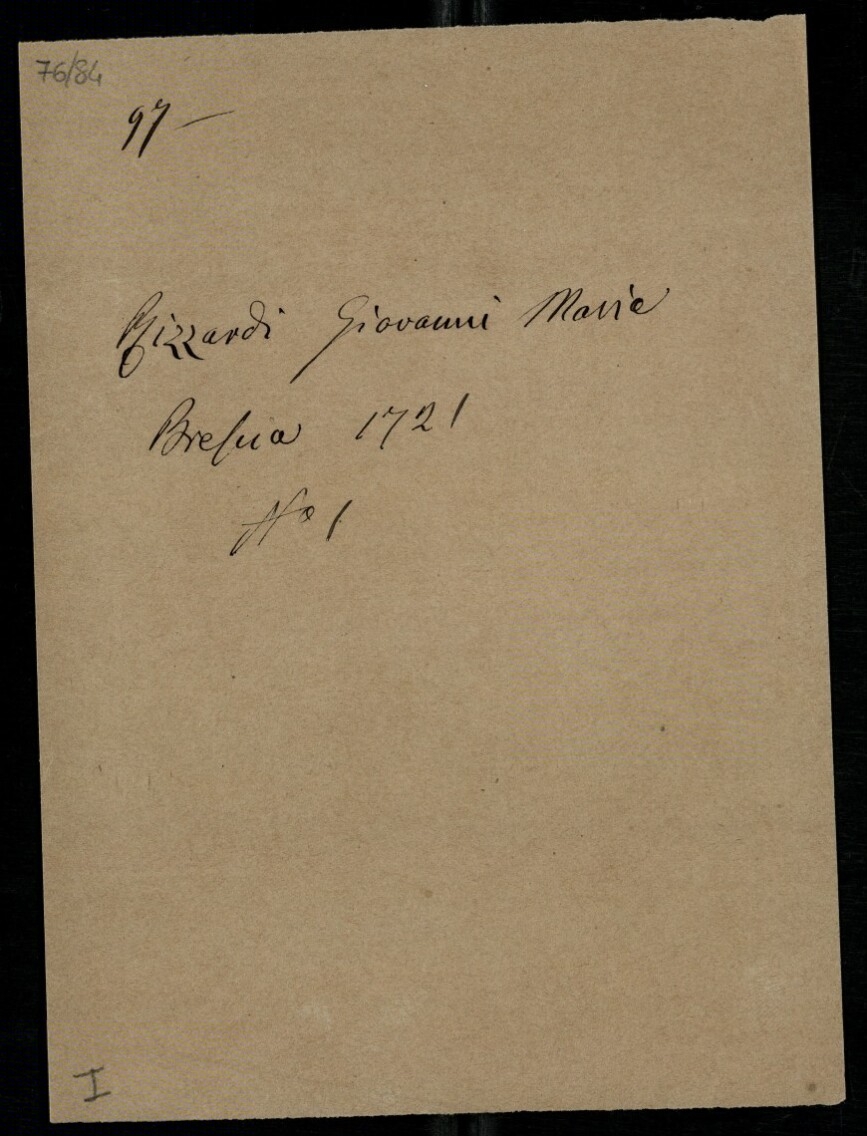 76/84
97 —
Rizzardi Giovanni Maria
Brescia 1721
No 1
I